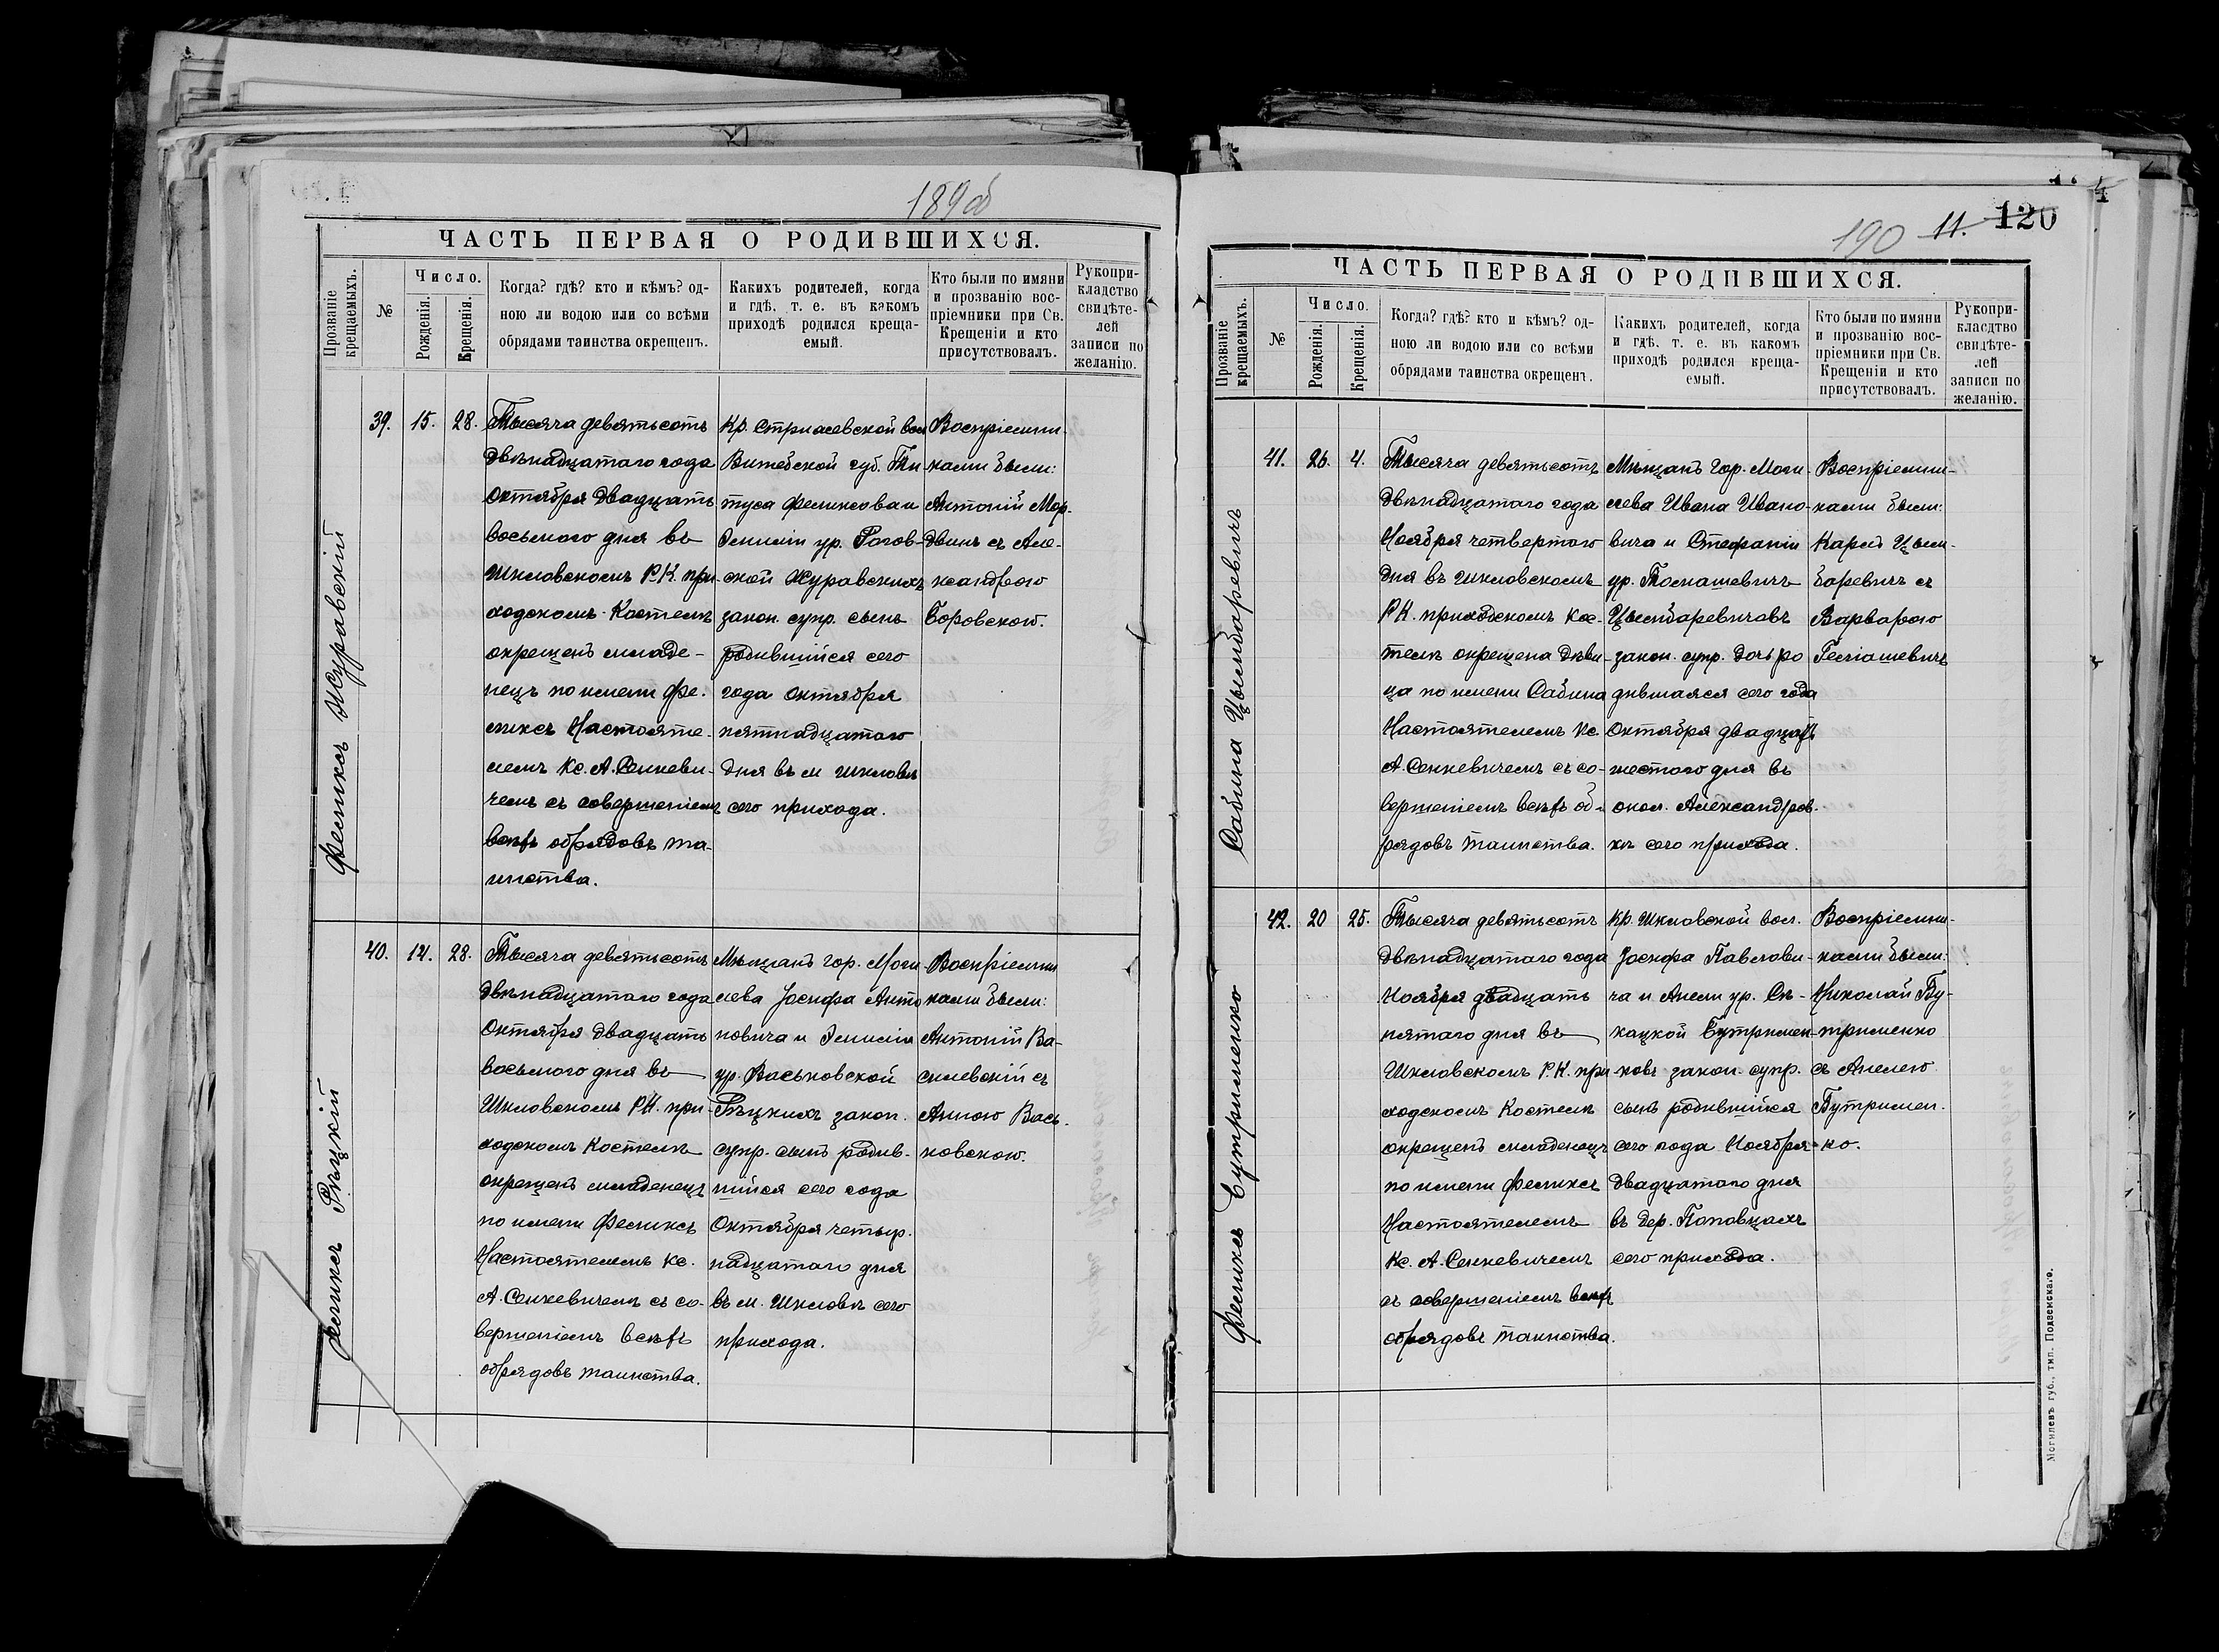 189 об
ЧАСТЬ ПЕРВАЯ О РОДИВШИХСЯ.
Прозваніе крещаемыхъ.
№
Число.
Рожденія.
Крещенія.
Когда? гдѣ? кто и кѣмъ? од-
ною ли водою или со всѣми
обрядами таинства окрещенъ.
Какихъ родителей, когда
и гдѣ, т. е. въ какомъ
приходѣ родился креща-
емый.
Кто были по имяни
и прозванію вос-
пріемники при Св.
Крещеніи и кто
присутствовалъ.
Рукопри-
кладство
свидѣте-
лей
записи по
желанію.
Феликсъ Журавскій
39.
15.
28.
Тысяча девятьсотъ
двѣнадцатаго года
Октября двадцать
восьмого дня въ
Шкловскомъ Р.К. при-
ходскомъ Костелѣ
окрещенъ младе-
нецъ по имени Фе-
ликсъ Настояте-
лемъ Кс. А. Сенкеви-
чемъ съ совершеніемъ
всѣхъ обрядовъ та-
инства.
Кр. Стрижевской вол.
Витебской губ. Ти-
туса Феликсова и
Эмиліи ур. Рогов-
ской Журавскихъ
закон. супр. сынъ
родившійся сего
года октября
пятнадцатаго
дня въ м. Шкловѣ
сего прихода.
Воспріемни-
ками были:
Антоній Мор-
двикъ съ Але-
ксандрою
Боровскою.
Феликсъ Рѣцкій
40.
14.
28.
Тысяча девятьсотъ
двѣнадцатаго года
Октября двадцать
восьмого дня въ
Шкловскомъ Р.К. при-
ходскомъ Костелѣ
окрещенъ младенецъ
по имени Феликсъ
Настоятелемъ Кс.
А. Сенкевичемъ съ со-
вершеніемъ всѣхъ
обрядовъ таинства.
Мѣщанъ гор. Моги-
лева Іосифа Анто-
новича и Эмиліи
ур. Васьковской
Рѣцкихъ закон.
супр. сынъ родив-
шійся сего года
Октября четыр-
надцатаго дня
въ м. Шкловѣ сего
прихода.
Воспріемни-
ками были:
Антоній Ва-
силевскій съ
Анною Вась-
ковскою.
190 11. 120
ЧАСТЬ ПЕРВАЯ О РОДИВШИХСЯ.
Прозваніе крещаемыхъ.
№
Число.
Рожденія.
Крещенія.
Когда? гдѣ? кто и кѣмъ? од-
ною ли водою или со всѣми
обрядами таинства окрещенъ.
Какихъ родителей, когда
и гдѣ, т. е. въ какомъ
приходѣ родился креща-
емый.
Кто были по имяни
и прозванію вос-
пріемники при Св.
Крещеніи и кто
присутствовалъ.
Рукопри-
класдтво
свидѣте-
лей
записи по
желанію.
Сабина Цымбаревичъ
41.
26.
4.
Тысяча девятьсотъ
двѣнадцатаго года
Ноября четвертого
дня въ Шкловскомъ
Р.К. приходскомъ Кос-
телѣ окрещена дѣви-
ца по имени Сабина
Настоятелемъ Кс.
А. Сенкевичемъ съ со-
вершеніемъ всѣхъ об-
рядовъ таинства.
Мѣщанъ гор. Моги-
лева Ивана Ивано-
вича и Стефаніи
ур.
Цымбаревичавъ
закон. супр. дочь ро
дившаяся сего года
Октября двадцать
шестого дня въ
окол. Александров-
кѣ сего прихода.
Воспріемни-
ками были:
Карлъ Цым-
баревичъ съ
Варварою
Феликсъ Бутрименко
42.
20
25.
Тысяча девятьсотъ
двѣнадцатаго года
Ноября двадцать
пятаго дня въ
Шкловскомъ Р.К. при-
ходскомъ Костелѣ
окрещенъ младенецъ
по имени Феликсъ
Настоятелемъ
Кс. А. Сенкевичемъ
съ совершеніемъ всѣхъ
обрядовъ таинства.
Кр. Шкловской вол.
Іосифа Павлови-
ча и Анели ур. Съ-
кацкой Бутримен-
ковъ закон. супр.
сынъ родившійся
сего года Ноября
двадцатаго дня
въ дер. Поповцахъ
сего прихода.
Воспріемни-
ками были:
Николай Бу-
трименко
съ Анелею
Бутримен-
ко.
Могилевъ губ., тип. Подземскаго.